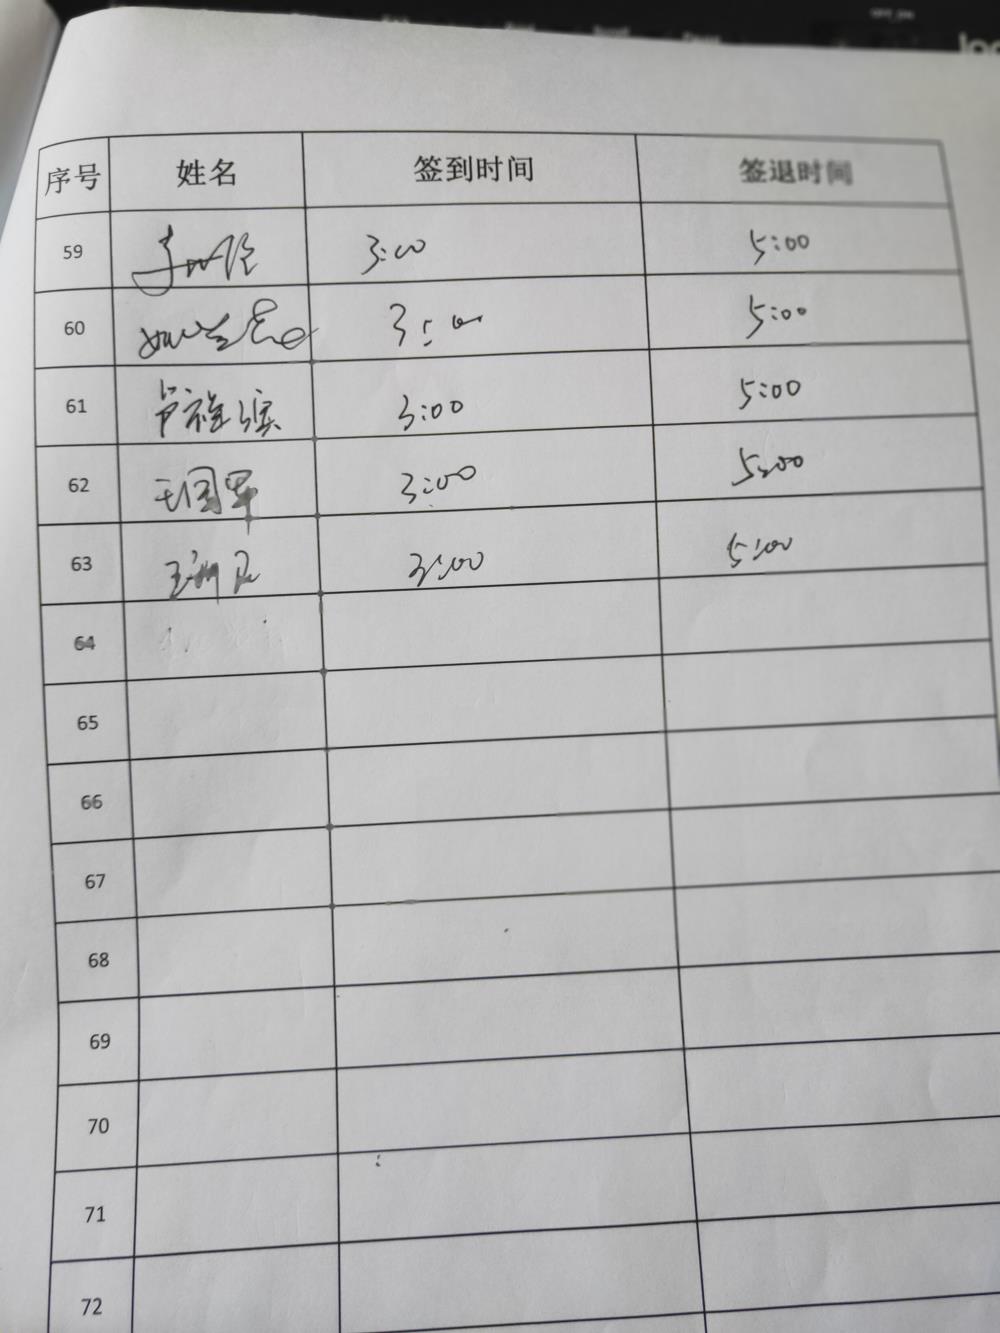 序号 姓名 签到时间 签退时间
59 3:00 5:00
60 3:00 5:00
61 3:00 5:00
62 王国军 3:00 5:00
63 3:00 5:00
64
65
66
67
68
69
70
71
72